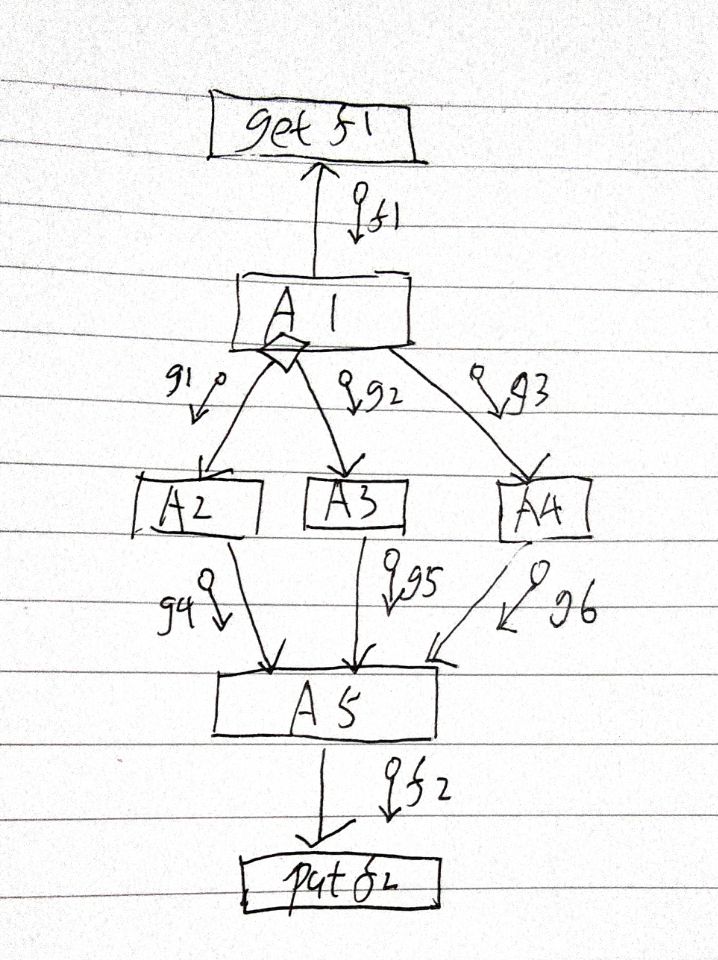 get f1
f1
A 1
g1
g2
g3
A2
A3
A4
g4
g5
g6
A 5
f2
put f2